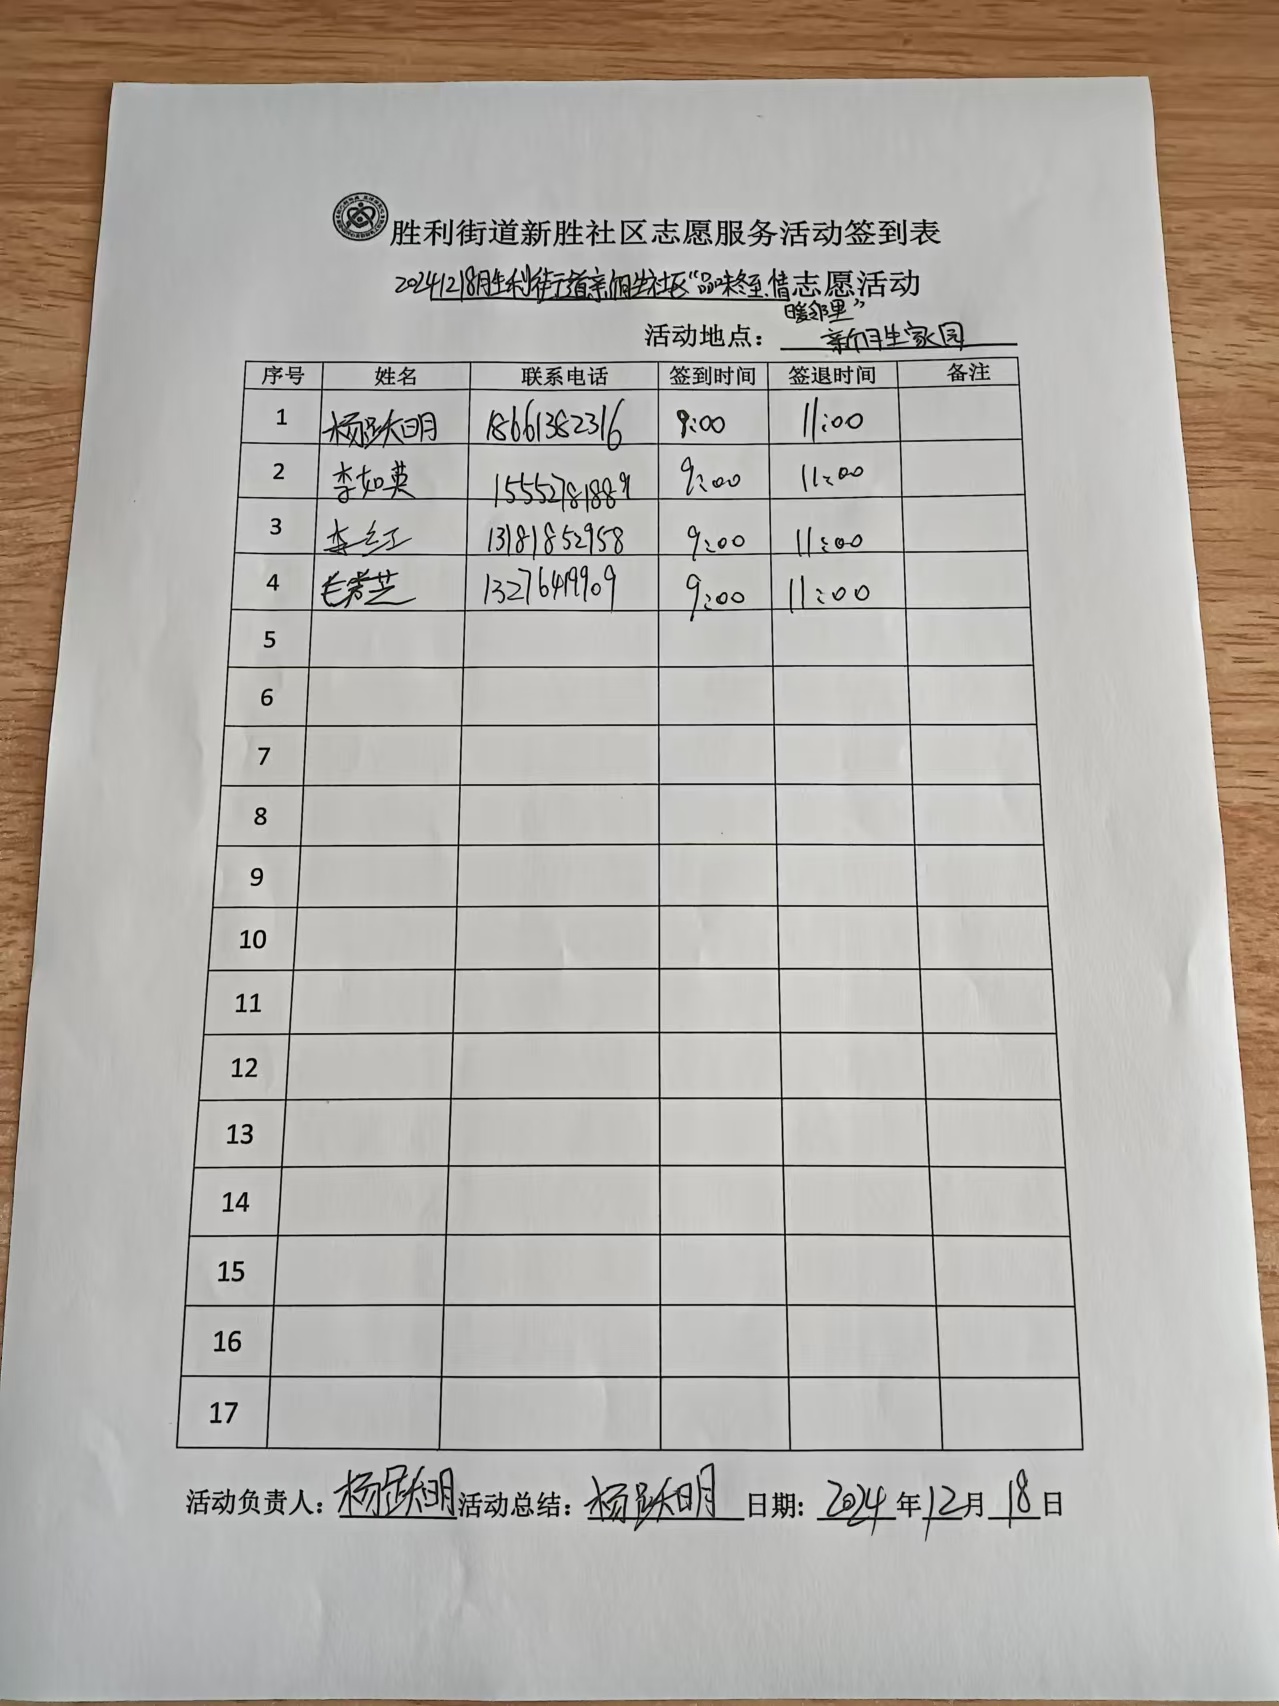 胜利街道新胜社区志愿服务活动签到表
20241218胜利街道新胜社区“品味冬至·情志愿活动
暖邻里”
活动地点：新胜家园
序号 姓名 联系电话 签到时间 签退时间 备注
1 杨跃明 18661382316 9:00 11:00
2 李如英 15552781889 9:00 11:00
3 李红 13181852958 9:00 11:00
4 毛秀芝 13276419909 9:00 11:00
5
6
7
8
9
10
11
12
13
14
15
16
17
活动负责人：杨跃明 活动总结：杨跃明 日期：2024年12月18日